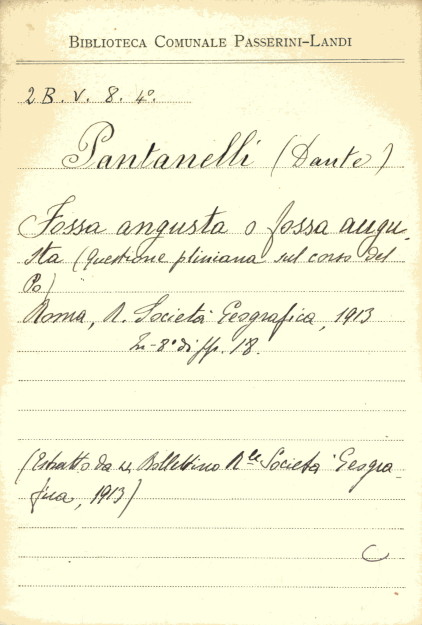 BIBLIOTECA COMUNALE PASSERINI-LANDI
2 B. V. 8. 4º.
Pantanelli (Dante)
Fossa angusta o fossa augu-
sta (Questione pliniana sul corso del
Po)
Roma, R. Società Geografica, 1913
In-8º di pp. 18.
(Estratto da Bollettino R.le Società Geogra-
fica, 1913)
C